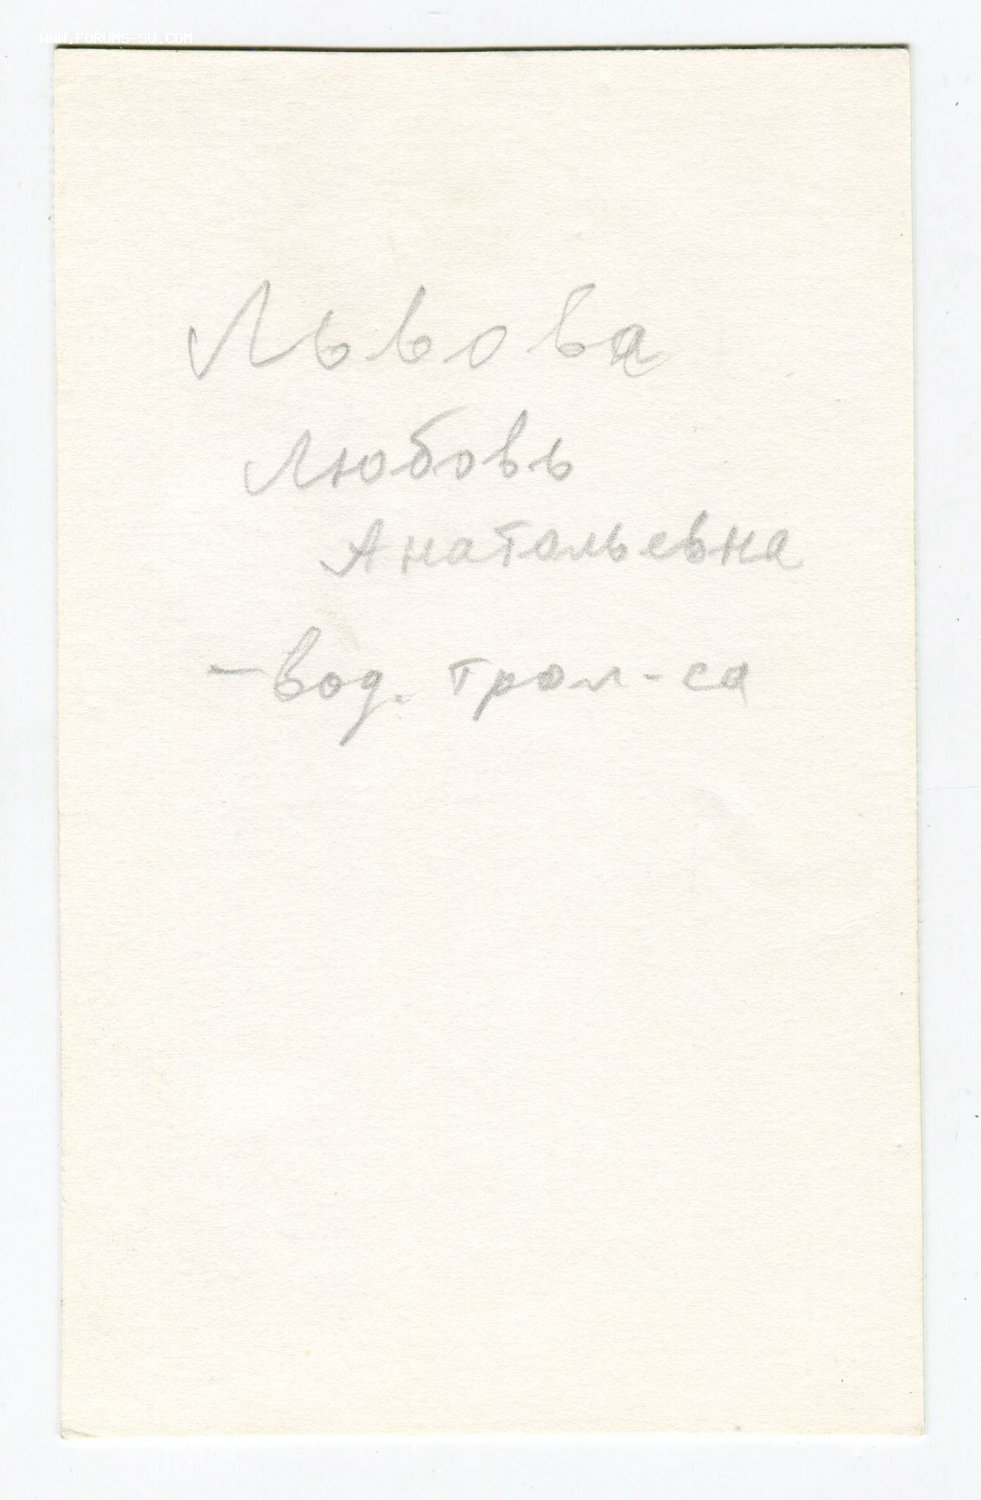 WWW.FORUMS-SU.COM
Львова
Любовь
Анатольевна
- вод. трол-са